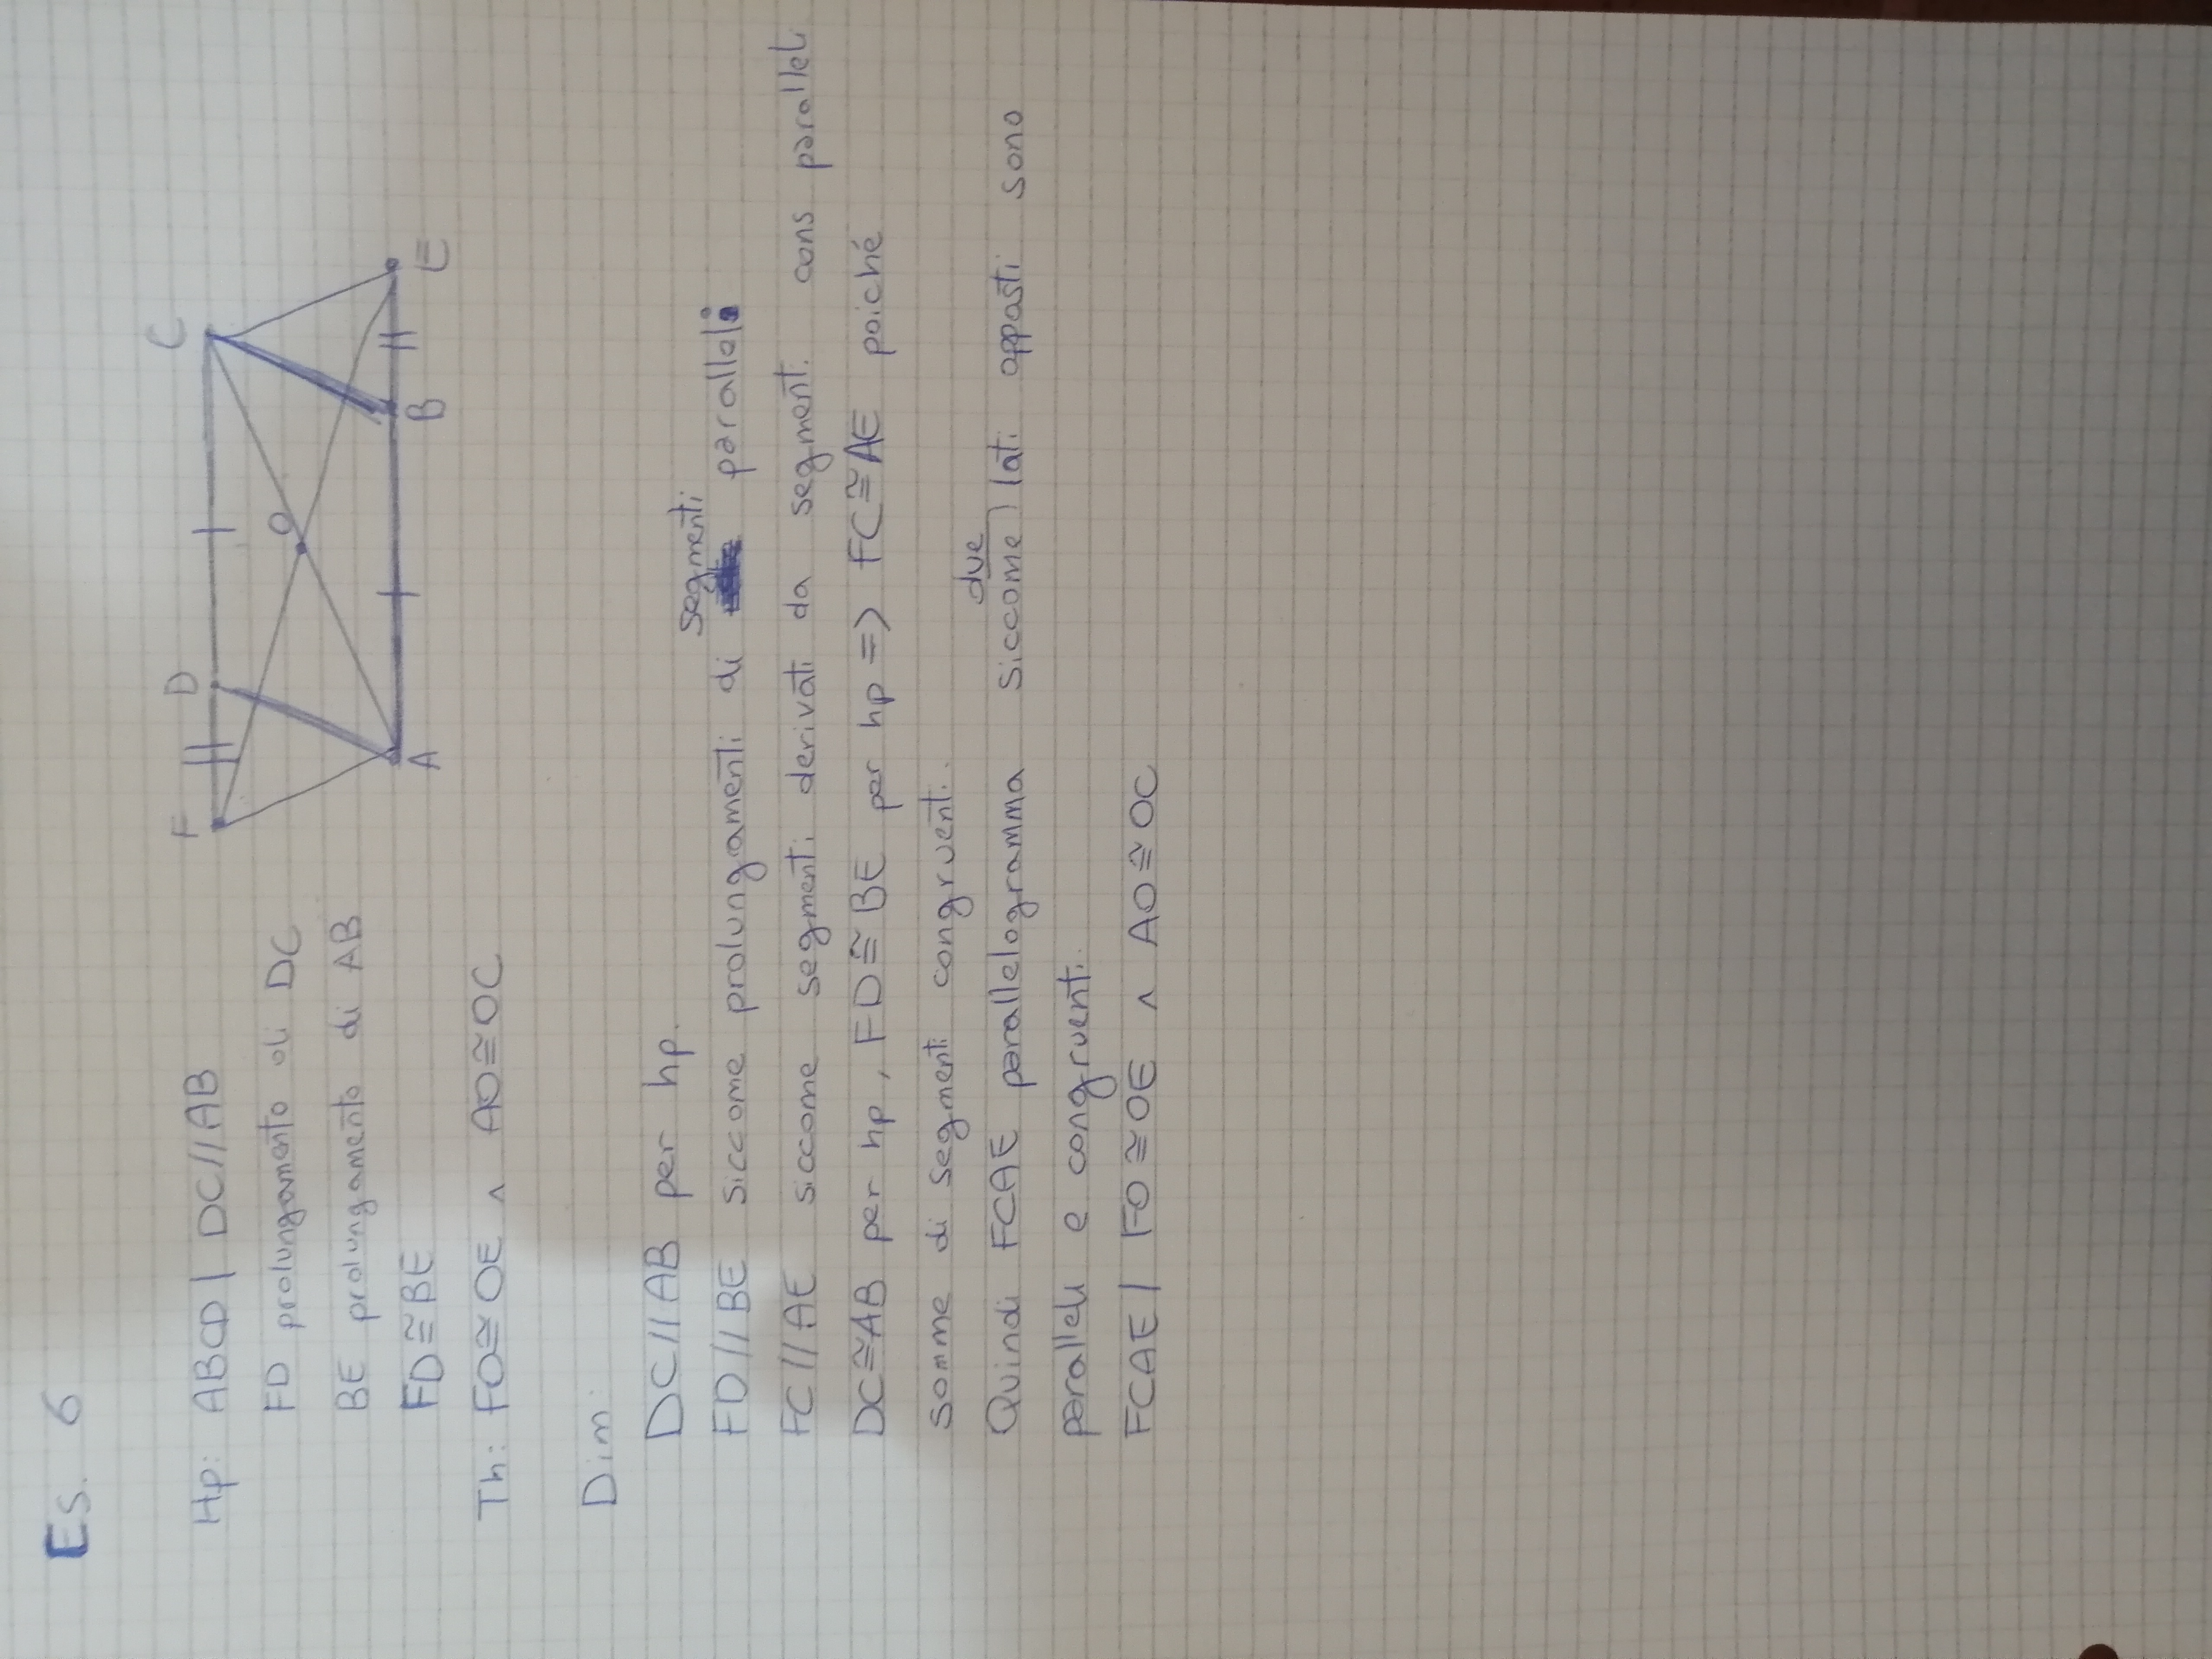 Es. 6
Hp: ABCD | DC//AB
FD prolungamento di DC
BE prolungamento di AB
FD≅BE
Th: FO≅OE ∧ AO≅OC
F D C
O
A B E
Dim:
DC//AB per hp.
FD//BE siccome prolungamenti di segmenti paralleli
FC//AE siccome segmenti derivati da segmenti cons paralleli
DC≅AB per hp, FD≅BE per hp => FC≅AE poiché
somme di segmenti congruenti.
Quindi FCAE parallelogramma siccome due lati opposti sono
paralleli e congruenti.
FCAE | FO≅OE ∧ AO≅OC